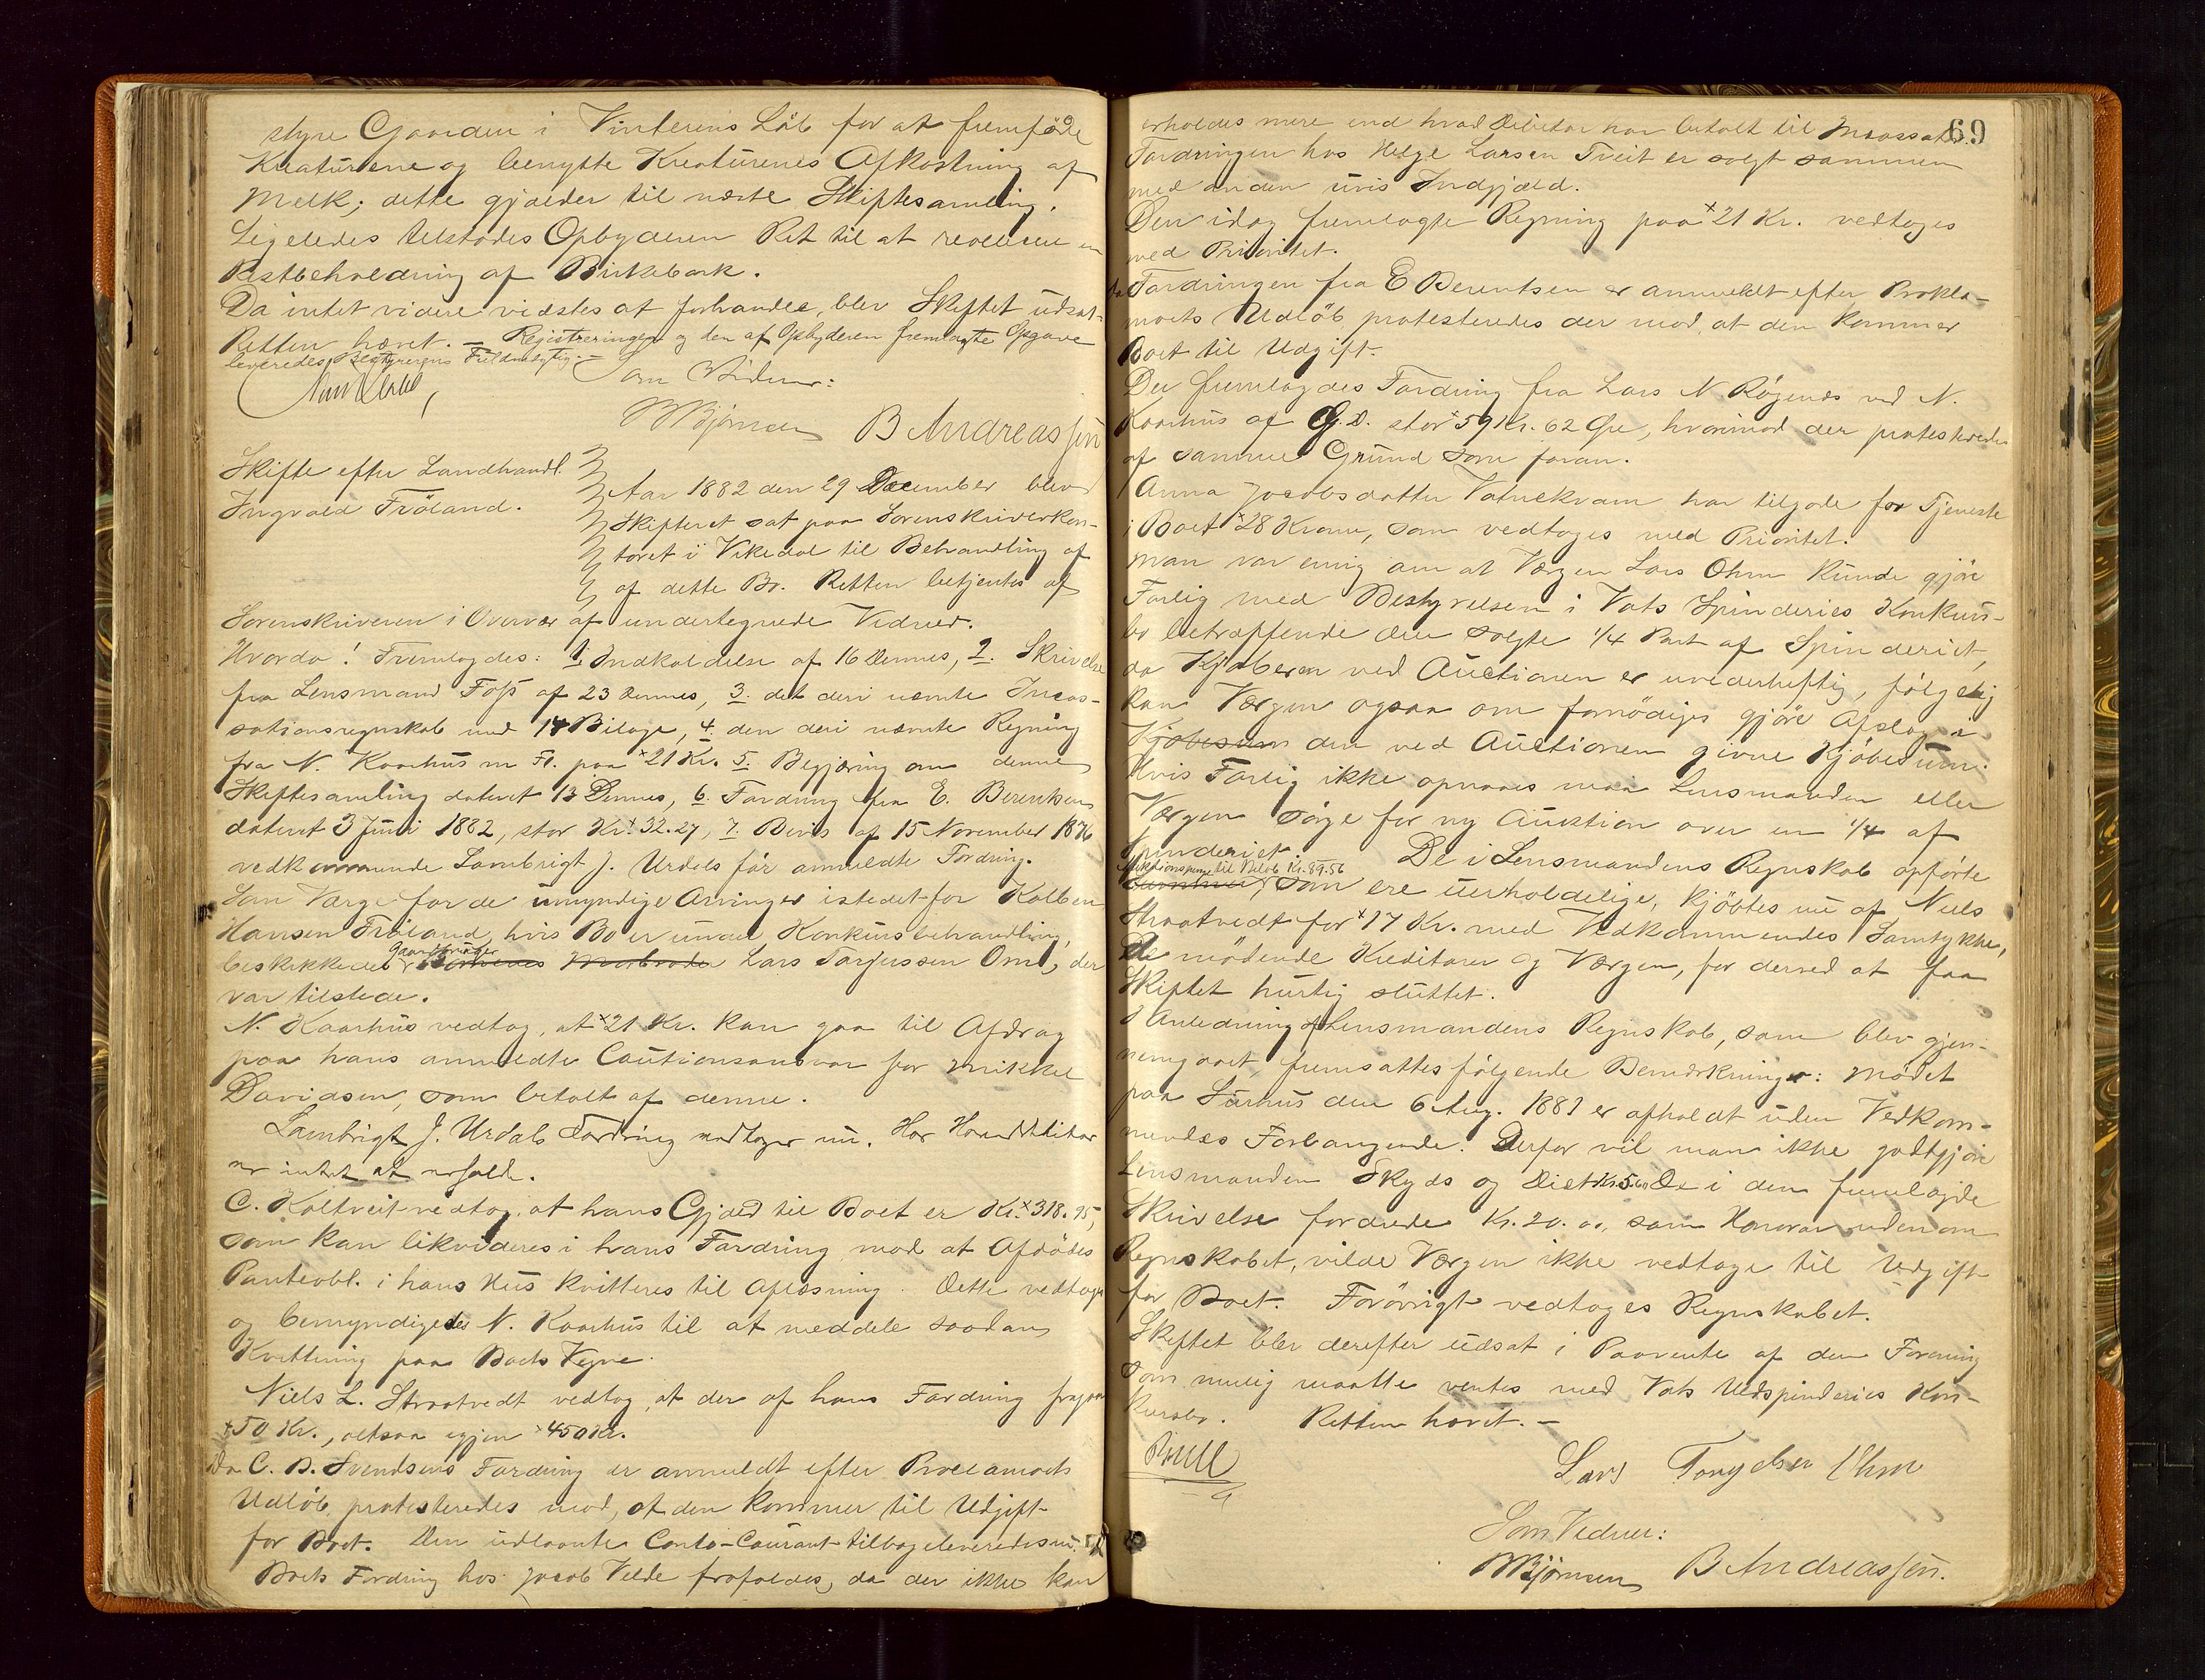 styre Gaarden i Vinterens Løb for at fremføde
Kreaturene og benytte Kreaturenes Afkastning af
Melk; dette gjælder til næste Skiftesamling.
Ligeledes tilstodes Opbyderen Ret til at realisere en
Restbeholdning af Birkebark.
Da intet videre vidstes at forhandle, blev Skiftet udsat.
Retten hævet. — Registreringen og den af Opbyderen fremlagte Opgave
leveredes Bestyrerens Fuldmægtig. —
Som Vidner:
MBjørnsen B Andreassen
Skifte efter Landhandl.
Ingvald Frøland.
Aar 1882 den 29 December blev
Skifteret sat paa Sorenskriverkon-
toret i Vikedal til Behandling af
af dette Bo. Retten betjentes af
Sorenskriveren i Overvær af undertegnede Vidner.
Hvorda! Fremlagdes: 1. Indkaldelse af 16 Dennes, 2. Skrivelse
fra Lensmand Foss af 23 Dennes, 3. det deri nævnte Incas-
sationsregnskab med 14 Bilage, 4. den deri nævnte Regning
fra N. Kaarhus m Fl. paa 21 Kr. 5. Begjæring om denne
Skiftesamling dateret 13 Dennes, 6. Fordring fra E. Berentsen
dateret 3 Juni 1882, stor Kr. 32.27, 7. Bevis af 15 November 1876
vedkommende Lambrigt J. Urdals før anmeldte Fordring.
Som Værge for de umyndige Arvinger istedetfor Kolben
Hansen Frøland, hvis Bo er under Konkursbehandling,
beskikkedes Gaardbruger Lars Torjerssen Ome, der
var tilstede.
N. Kaarhus vedtog, at 21 Kr. kan gaa til Afdrag
paa hans anmeldte Cautionsansvar for Mikkel
Davidsen, som betalt af denne.
Lambrigt J. Urdals Fordring vedtages nu. Hos
er intet at erholde.
C. Koltveit vedtog, at hans Gjæld til Boet er Kr. 318.95,
som kan likvideres i hans Fordring mod at Afdødes
Panteobl. i hans Hus kvitteres til Aflæsning. Dette vedtoges
og bemyndigedes N. Kaarhus til at meddele saadan
Kvittering paa Boets Vegne.
Niels L. Straatvedt vedtog, at der af hans Fordring fragaar
50 Kr., altsaa igjen 450 Kr.
Da C. B. Svendsens Fordring er anmeldt efter Proclamaets
Udløb, protesteredes mod, at den kommer til Udgift
for Boet. Den udlaante Conto-Courant tilbageleveredes nu.
Boets Fordring hos Jacob Velde frafaldes, da der ikke kan
69
erholdes mere end hvad Debitor har betalt til Massen.
Fordringen hos Helge Larsen Tveit er solgt sammen
med anden uvis Indgjæld.
Den idag fremlagte Regning paa 21 Kr. vedtoges
med Prioritet.
Da Fordringen fra E Berentsen er anmeldt efter Prokla-
maets Udløb protesteredes der mod, at den kommer
Boet til Udgift.
Der fremlagdes Fordring fra Lars N. Røgenes ved N.
Kaarhus af G.D. stor 59 Kr. 62 Øre, hvorimod der protesteredes
af samme Grund som foran.
Anna Jacobsdatter Vatnekvam har tilgode for Tjeneste
i Boet 28 Kroner, som vedtoges med Prioritet.
Man var enig om at Værgen Lars Ohm kunde gjøre
Forlig med Bestyrelsen i Vats Spinderies Konkurs-
bo betræffende den solgte 1/4 Part af Spinderiet,
da Kjøberen ved Auctionen er uvederheftig, følgelig
kan Værgen ogsaa om fornødiges gjøre Afslag i
Kjøbesum den ved Auctionen givne Kjøbesum.
Hvis Forlig ikke opnaaes maa Lensmanden eller
Værgen sørge for ny Auktion over en 1/4 af
Spinderiet. De i Lensmandens Regnskab opførte
Auktionspenge til Beløb Kr. 89.56
som ere uerholdelige, kjøbtes nu af Niels
Straatvedt for 17 Kr. med Vedkommendes Samtykke,
de mødende Kreditorer og Værgen, for derved at faa
Skiftet hurtig sluttet.
I Anledning af Lensmandens Regnskab, som blev gjen-
nemgaaet, fremsattes følgende Bemærkninger: Mødet
paa Surhus den 6 Aug. 1881 er afholdt uden Vedkom-
mendes Forlangende. Derfor vil man ikke godtgjøre
Lensmanden Skyds og Diet Kr. 5.60 De i den fremlagte
Skrivelse fordrede Kr. 20.00, som Honorar udenom
Regnskabet, vilde Værgen ikke vedtage til Udgift
for Boet. Forøvrigt vedtoges Regnskabet.
Skiftet blev derefter udsat i Paavente af den Forening
som mulig maatte ventes med Vats Uldspinderies Kon-
kursbo. Retten hævet. —
Lars Torgersen Ohm
Som Vidner:
MBjørnsen B Andreassen.